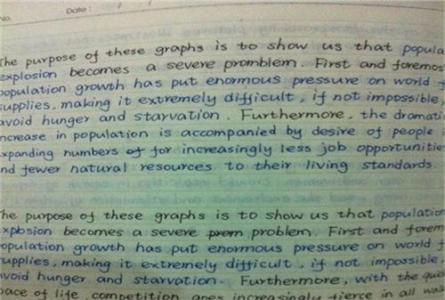 No.
Date:
The purpose of these graphs is to show us that popula
explosion becomes a severe promblem. First and foremos
population growth has put enormous pressure on world f
supplies, making it extremely difficult, if not impossible
avoid hunger and starvation. Furthermore, the dramati
increase in population is accompanied by desire of people
expanding numbers of for increasingly less job opportunitie
and fewer natural resources to their living standards.
The purpose of these graphs is to show us that population
explosion becomes a severe prom problem. First and forem
population growth has put enormous pressure on world f
supplies, making it extremely difficult, if not impossible.
avoid hunger and starvation. Furthermore, with the quic
pace of life, competition goes increasingly fierce in all wa